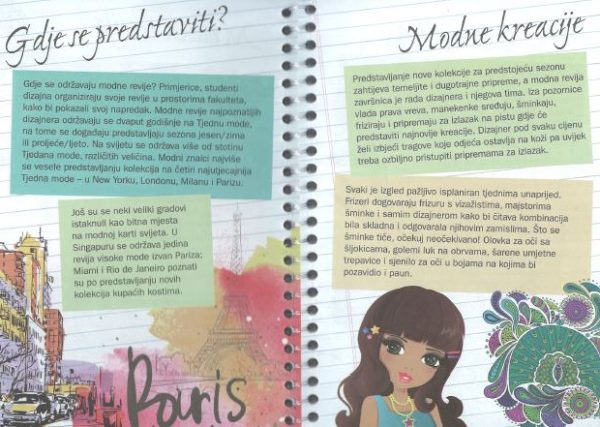 Gdje se predstaviti?
Gdje se održavaju modne revije? Primjerice, studenti
dizajna organiziraju svoje revije u prostorima fakulteta,
kako bi pokazali svoj napredak. Modne revije najpoznatijih
dizajnera održavaju se dvaput godišnje na Tjednu mode,
na tome se događaju predstavljaju sezona jesen/zima
ili proljeće/ljeto. Na svijetu se održava više od stotinu
Tjedana mode, različitih veličina. Modni znalci najviše
se vesele predstavljanju kolekcija na četiri najutjecajnija
Tjedna mode – u New Yorku, Londonu, Milanu i Parizu.
Još su se neki veliki gradovi
istaknuli kao bitna mjesta
na modnoj karti svijeta. U
Singapuru se održava jedina
revija visoke mode izvan Pariza;
Miami i Rio de Janeiro poznati
su po predstavljanju novih
kolekcija kupaćih kostima.
Paris
Modne kreacije
Predstavljanje nove kolekcije za predstojeću sezonu
zahtijeva temeljite i dugotrajne pripreme, a modna revija
završnica je rada dizajnera i njegova tima. Iza pozornice
vlada prava vreva, manekenke sređuju, šminkaju,
friziraju i pripremaju za izlazak na pistu gdje će
predstaviti najnovije kreacije. Dizajner pod svaku cijenu
želi izbjeći tragove koje odjeća ostavlja na koži pa uvijek
treba ozbiljno pristupiti pripremama za izlazak.
Svaki je izgled pažljivo isplaniran tjednima unaprijed.
Frizeri dogovaraju frizuru s vizažistima, majstorima
šminke i samim dizajnerom kako bi čitava kombinacija
bila skladna i odgovarala njihovim zamislima. Što se
šminke tiče, očekuj neočekivano! Olovka za oči sa
šljokicama, golemi luk na obrvama, šarene umjetne
trepavice i sjenilo za oči u bojama na kojima bi
pozavidio i paun.